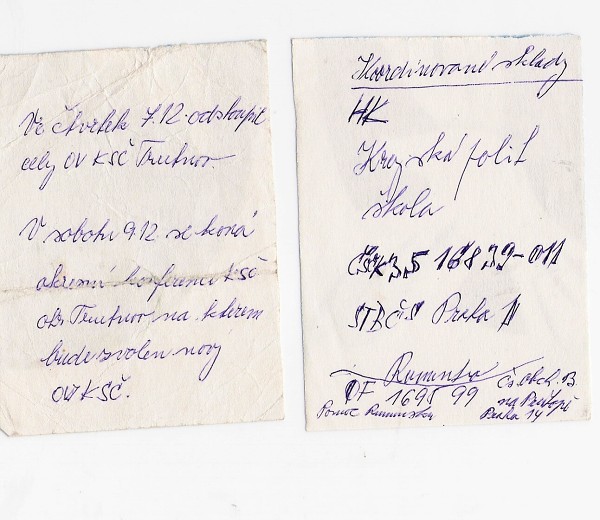 Ve čtvrtek 7.12 odstoupil
celý OV KSČ Trutnov.
V sobotu 9.12 se koná
okresní konference KSČ
okr. Trutnov na kterém
bude zvolen nový
OV KSČ.
Koordinované sklady
HK
Krajská polit
škola
ČSK 35 16839-011
STB ČS Praha 1
Rumunsko
OF 1695 99
Pomoc Rumunsku
Čs. obch. B.
na Příkopě
Praha 14